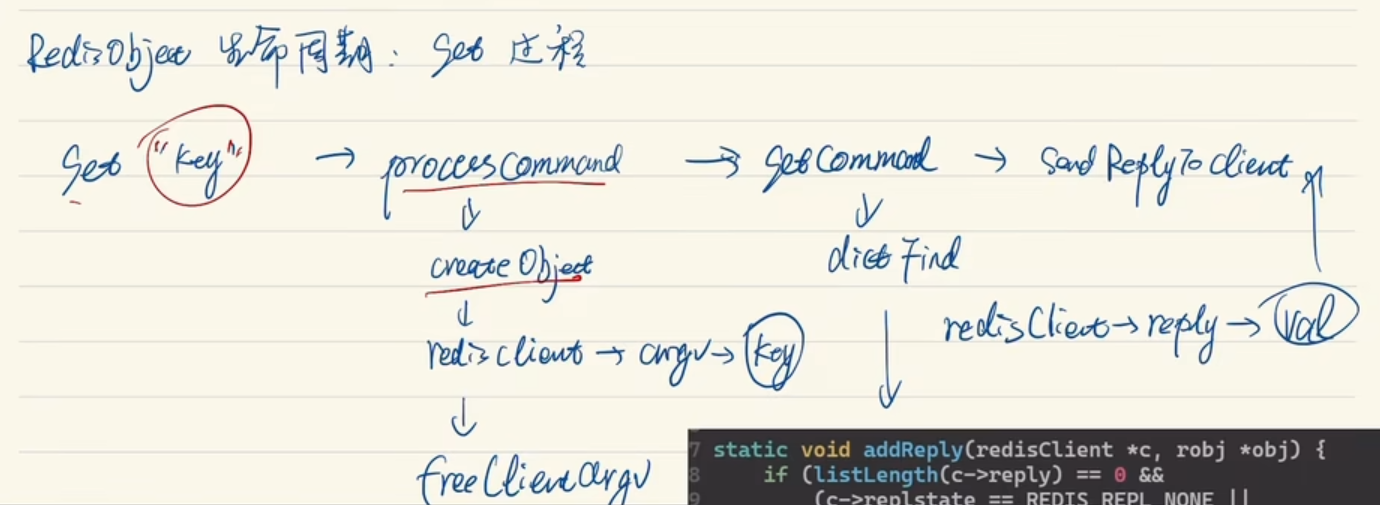 RedisObject 生命周期: Get 过程
Get "key" → processCommand → getCommand → SendReplyToClient
↓ ↓
createObject dictFind
↓
redisClient → argv → key
redisClient → reply → val
↓
freeClientArgv
7 static void addReply(redisClient *c, robj *obj) {
8 if (listLength(c->reply) == 0 &&
9 (c->replstate == REDIS_REPL_NONE ||